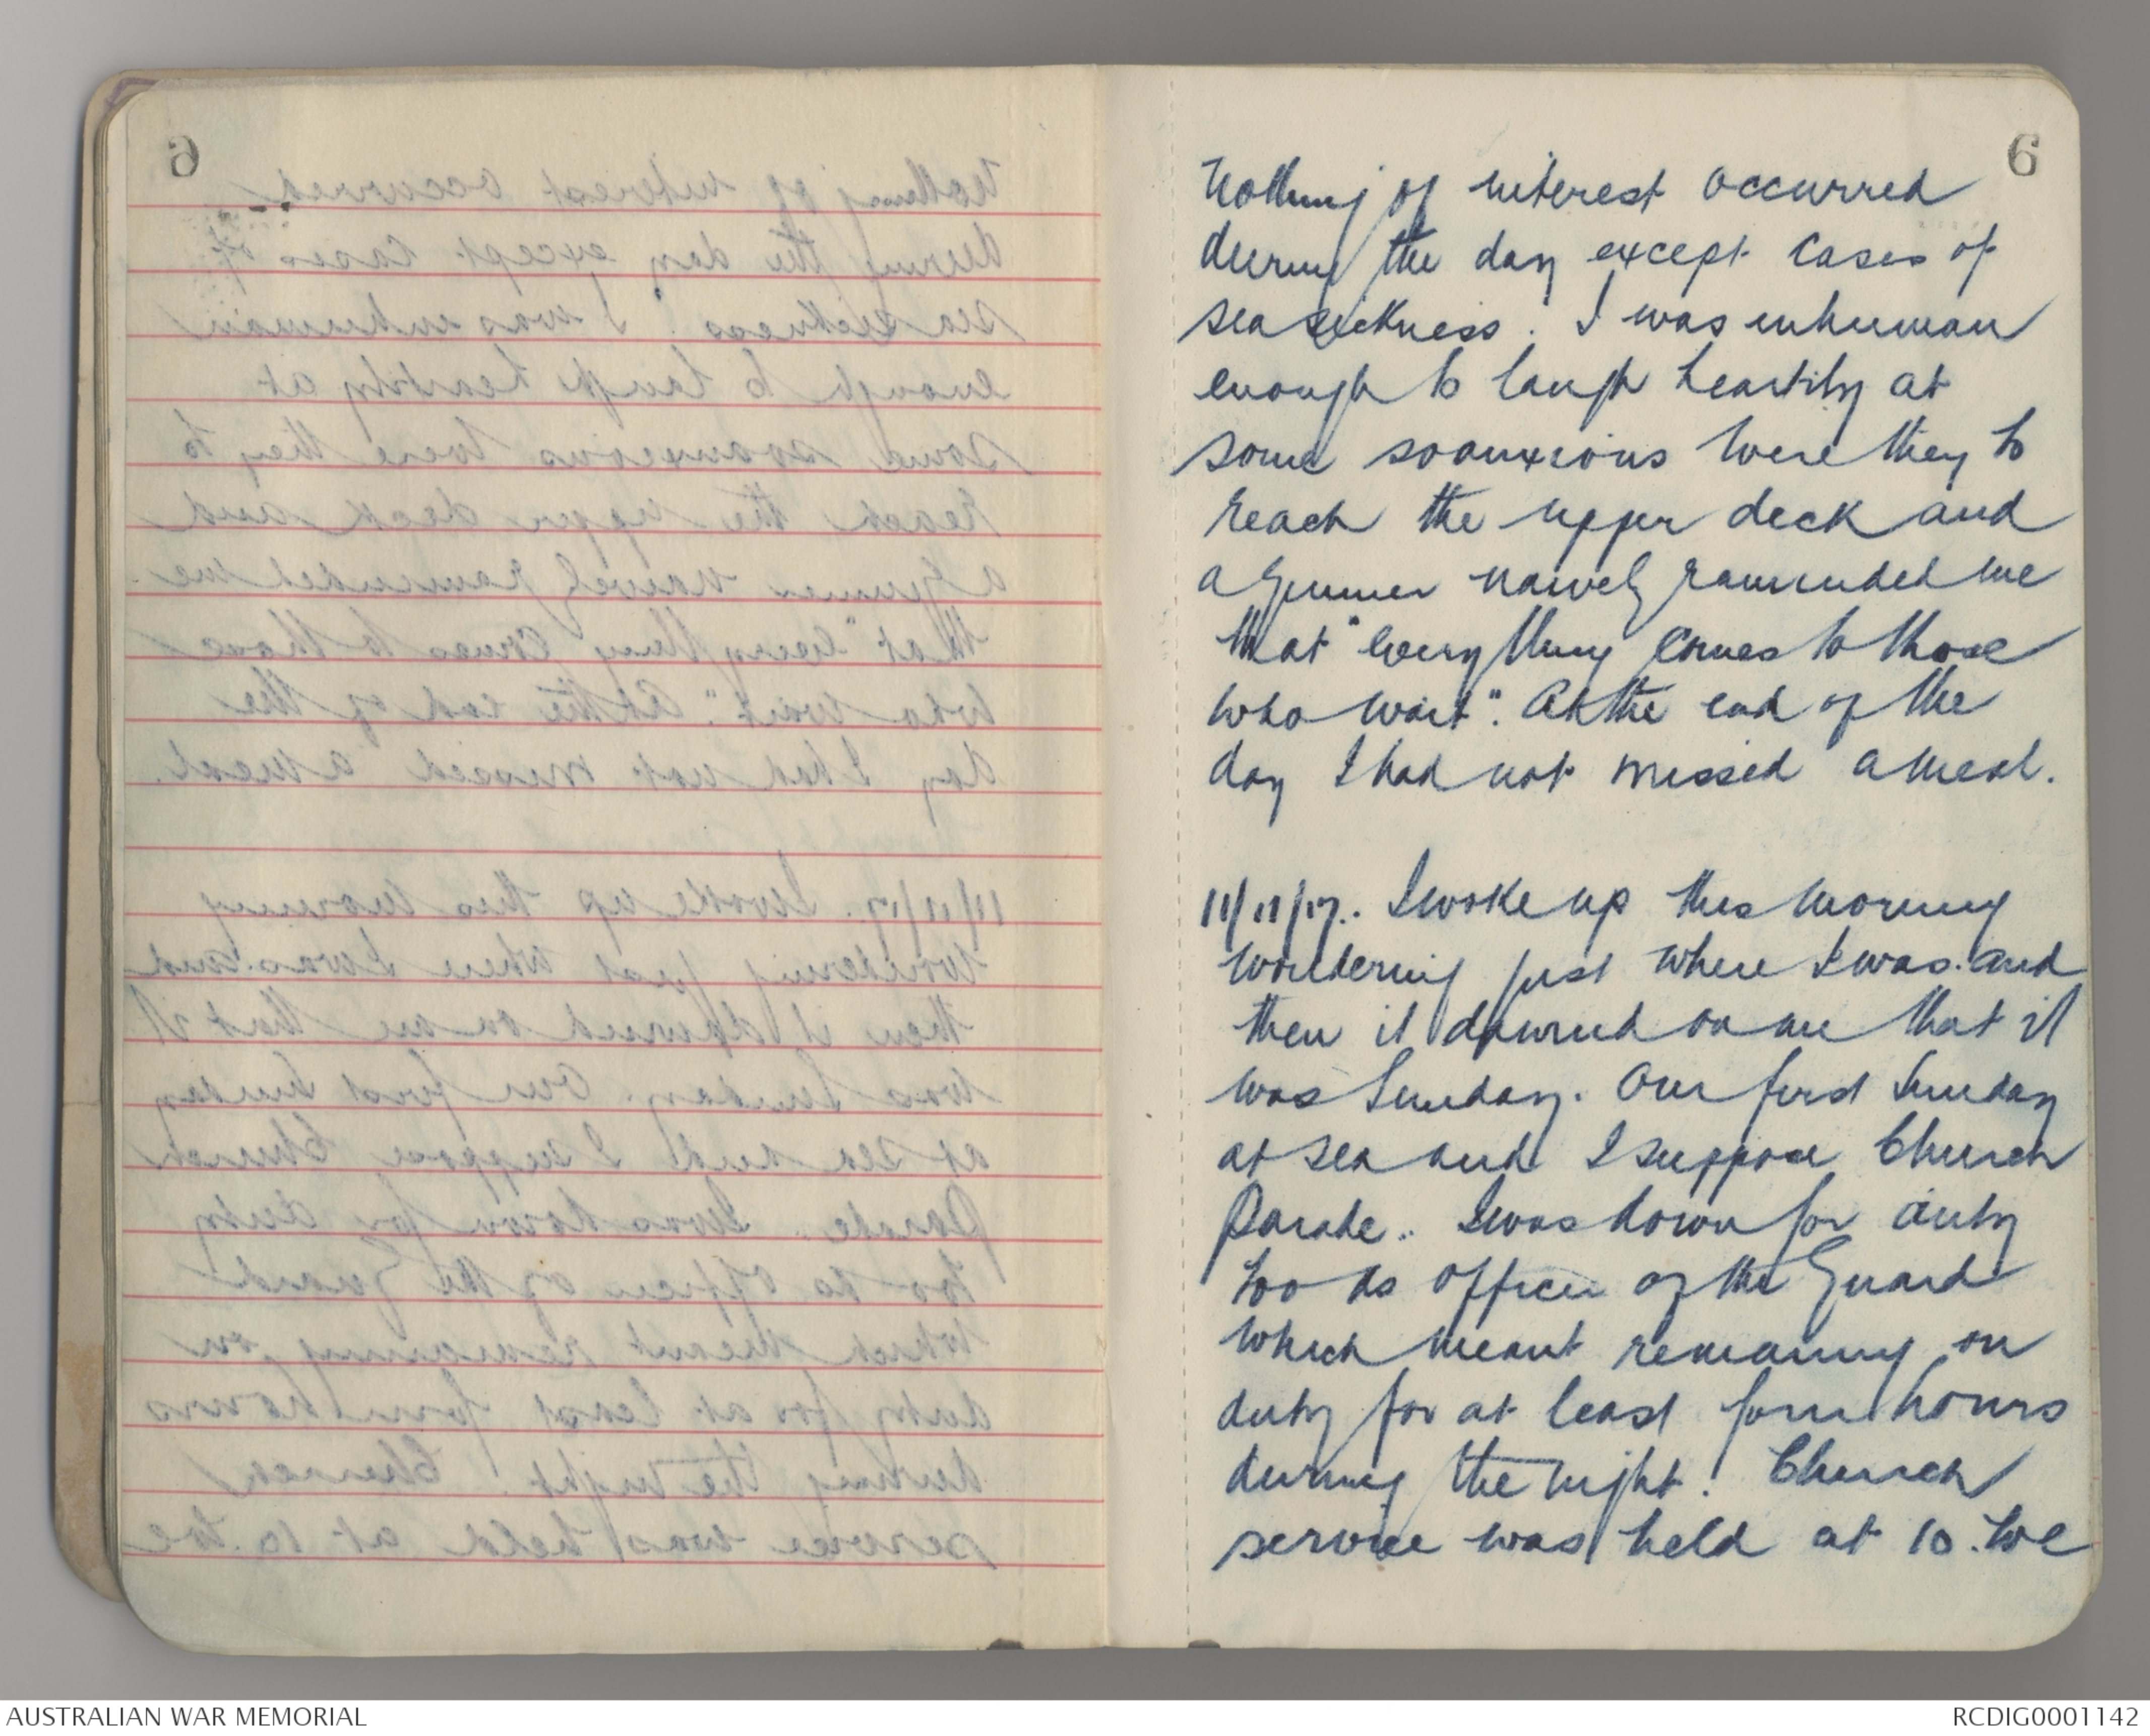 6
Nothing of interest occurred
during the day except cases of
sea sickness. I was inhuman
enough to laugh heartily at
some so anxious were they to
reach the upper deck and
a Gunner naively raminded me
that "everything comes to those
who wait". At the end of the
day I had not missed a meal.
11/11/17. I woke up this morning
wondering just where I was and
then it dawned on me that it
was Sunday. Our first Sunday
at sea and I suppose Church
Parade.. I was down for duty
too as Officer of the Guard
which meant remaining on
duty for at least four hours
during the night! Church
service was held at 10. We
AUSTRALIAN WAR MEMORIAL
RCDIG0001142